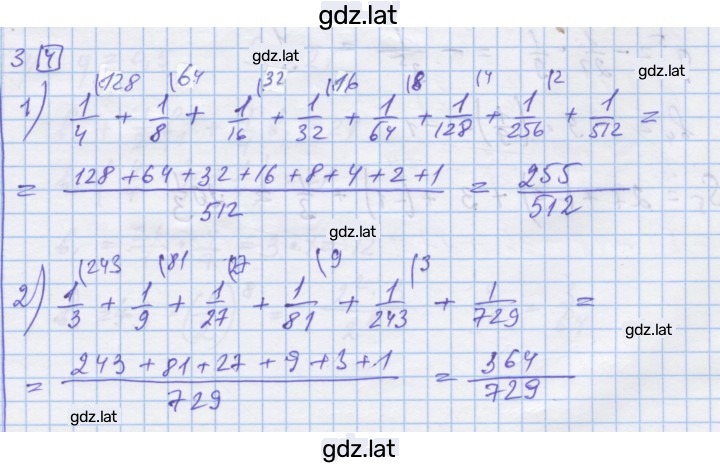 gdz.lat
3 4
gdz.lat
1) 1/4 (128 + 1/8 (64 + 1/16 (32 + 1/32 (16 + 1/64 (8 + 1/128 (4 + 1/256 (2 + 1/512 =
= 128+64+32+16+8+4+2+1/512 = 255/512
gdz.lat
2) 1/3 (243 + 1/9 (81 + 1/27 (27 + 1/81 (9 + 1/243 (3 + 1/729 =
gdz.lat
= 243+81+27+9+3+1/729 = 364/729
gdz.lat
gdz.lat
gdz.lat